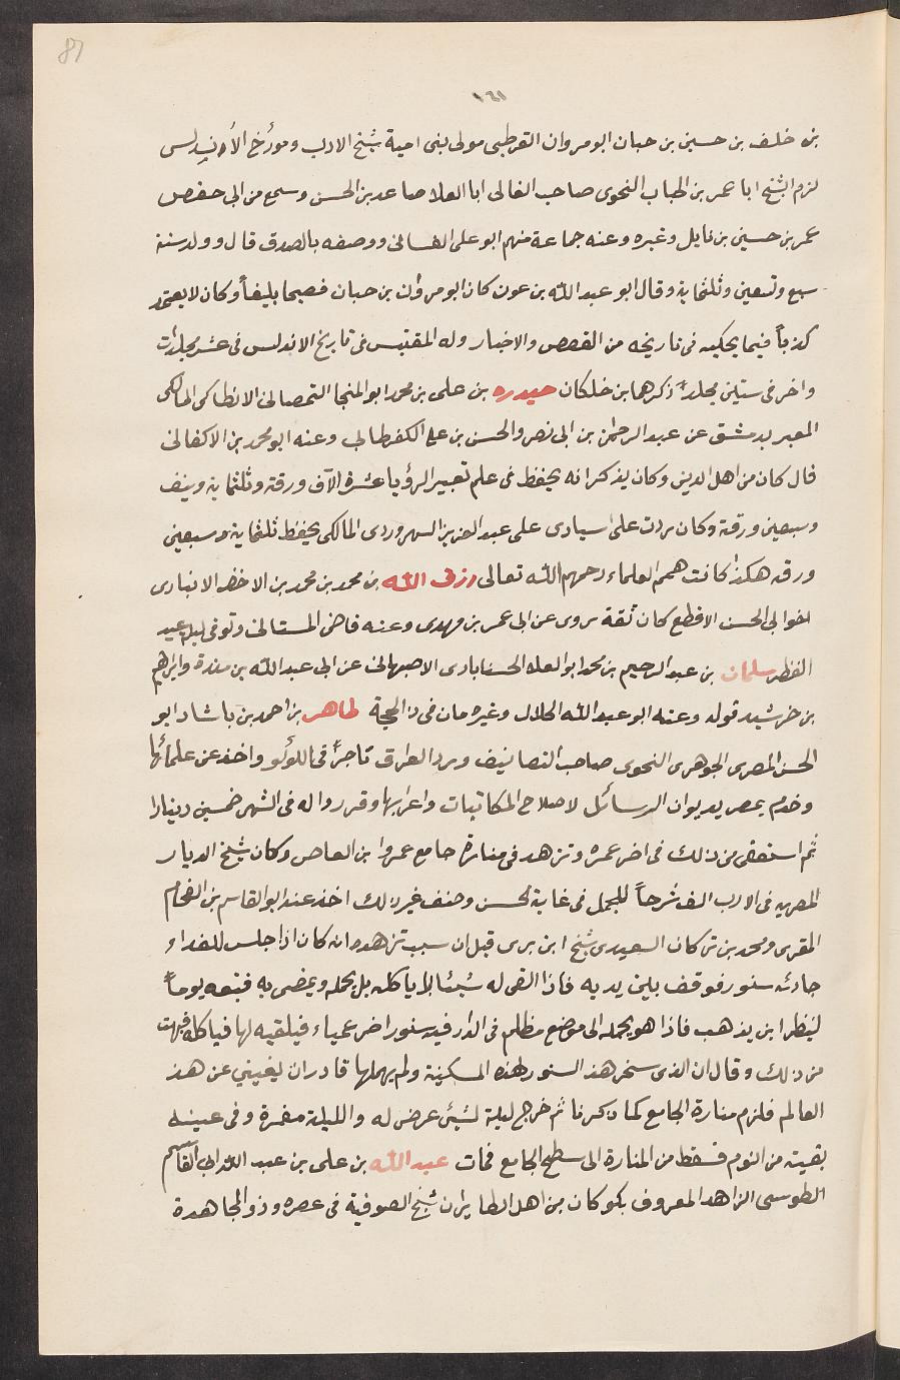 87
١٦١
بن خلف بن حسين بن حبان ابومروان القرطبى مولى بنى امية شيخ الادب ومورخ الأندلس
لزم الشيخ ابا عمر بن الحباب النحوى صاحب القالى ابا العلا صاعد بن الحسن وسمع من ابى حفص
عمر بن حسين بن نايل وغيره وعنه جماعة منهم ابو على الغسانى ووصفه بالصدق قال وولد سنة
سبع وتسعين وثلثماية وقال ابو عبد الله بن عون كان ابو مروان بن حبان فصيحا بليغاً وكان لا يعتمد
كذباً فيما يحكيه فى تاريخه من القصص والاخبار وله المقتبس فى تاريخ الاندلس فى عشر مجلدات
واخر فى ستين مجلداً ذكرهما بن خلكان حيدره بن على بن محمد ابو المنجا التمصالى الانطاكى المالكى
المعبر بدمشق عن عبد الرحمن بن ابى نصر والحسن بن على الكفرطابى وعنه ابو محمد بن الاكفانى
قال كان من اهل الدين وكان يذكر انه يحفظ فى علم تعبير الرؤيا عشرة الآف ورقة وثلثماية ونيف
وسبعين ورقة وكان يردت على اسيادى على عبد العزيز السهروردى المالكى يحفظ ثلثماية وسبعين
ورقه هكذا كانت همم العلماء رحمهم الله تعالى رزق الله بن محمد بن محمد بن الاخضر الانبارى
اخوابى الحسن الاقطع كان ثقة يروى عن ابى عمر بن مهدى وعنه قاضى المستانى وتوفى ليلة عيد
الفطر سلمان بن عبد الرحيم بن محمد ابو العلا الحسنابادى الاصبهانى عن ابى عبد الله بن مندة وابراهيم
بن خرشيد قوله وعنه ابو عبد الله الخلال وغيره مات فى ذا الحجة طاهر بن احمد بن باشاد ابو
الحسن المصرى الجوهرى النحوى صاحب التصانيف ورد العراق تاجراً فى اللؤلو واخذ عن علمائها
وخدم بمصر بديوان الرسائل لاصلاح المكاتبات واعرابها وقرروا له فى الشهر خمسين دينارا
ثم استعفى من ذلك فى اخر عمره وتزهد فى منارة جامع عمروا بن العاص وكان شيخ الديار
المصريه فى الادب الف شرحاً للجمل فى غاية الحسن وصنف غير ذلك اخذ عنه ابو القاسم بن الفحام
المقرى ومحمد بن بركات السعيدى شيخ ابن برى قيل ان سبب تزهده انه كان اذا جلس للغداء
جائه سنور فوقف بين يديه فاذا القى له شيئا لا ياكله بل يحمله ويمضى به فتبعه يوماً
لينظر اين يذهب فاذا هو يحمله الى موضع مظلم فى الدار فيه سنور اخر عمياء فيلقيه لها فياكله فبهت
من ذلك وقال ان الذى سخر هذ السنور لهذه المسكينة ولم يهملها قادر ان يغينى عن هذ
العالم فلزم منارة الجامع كما ذكرنا ثم خرج ليلة لشئ عرض له والليلة مقمرة وفى عينه
بقية من النوم فسقط من المنارة الى سطح الجامع فمات عبد الله بن على بن عبد الله ابى القاسم
الطوسى الزاهد المعروف بكوكان من اهل الطابران شيخ الصوفية فى عصره وذو المجاهدة